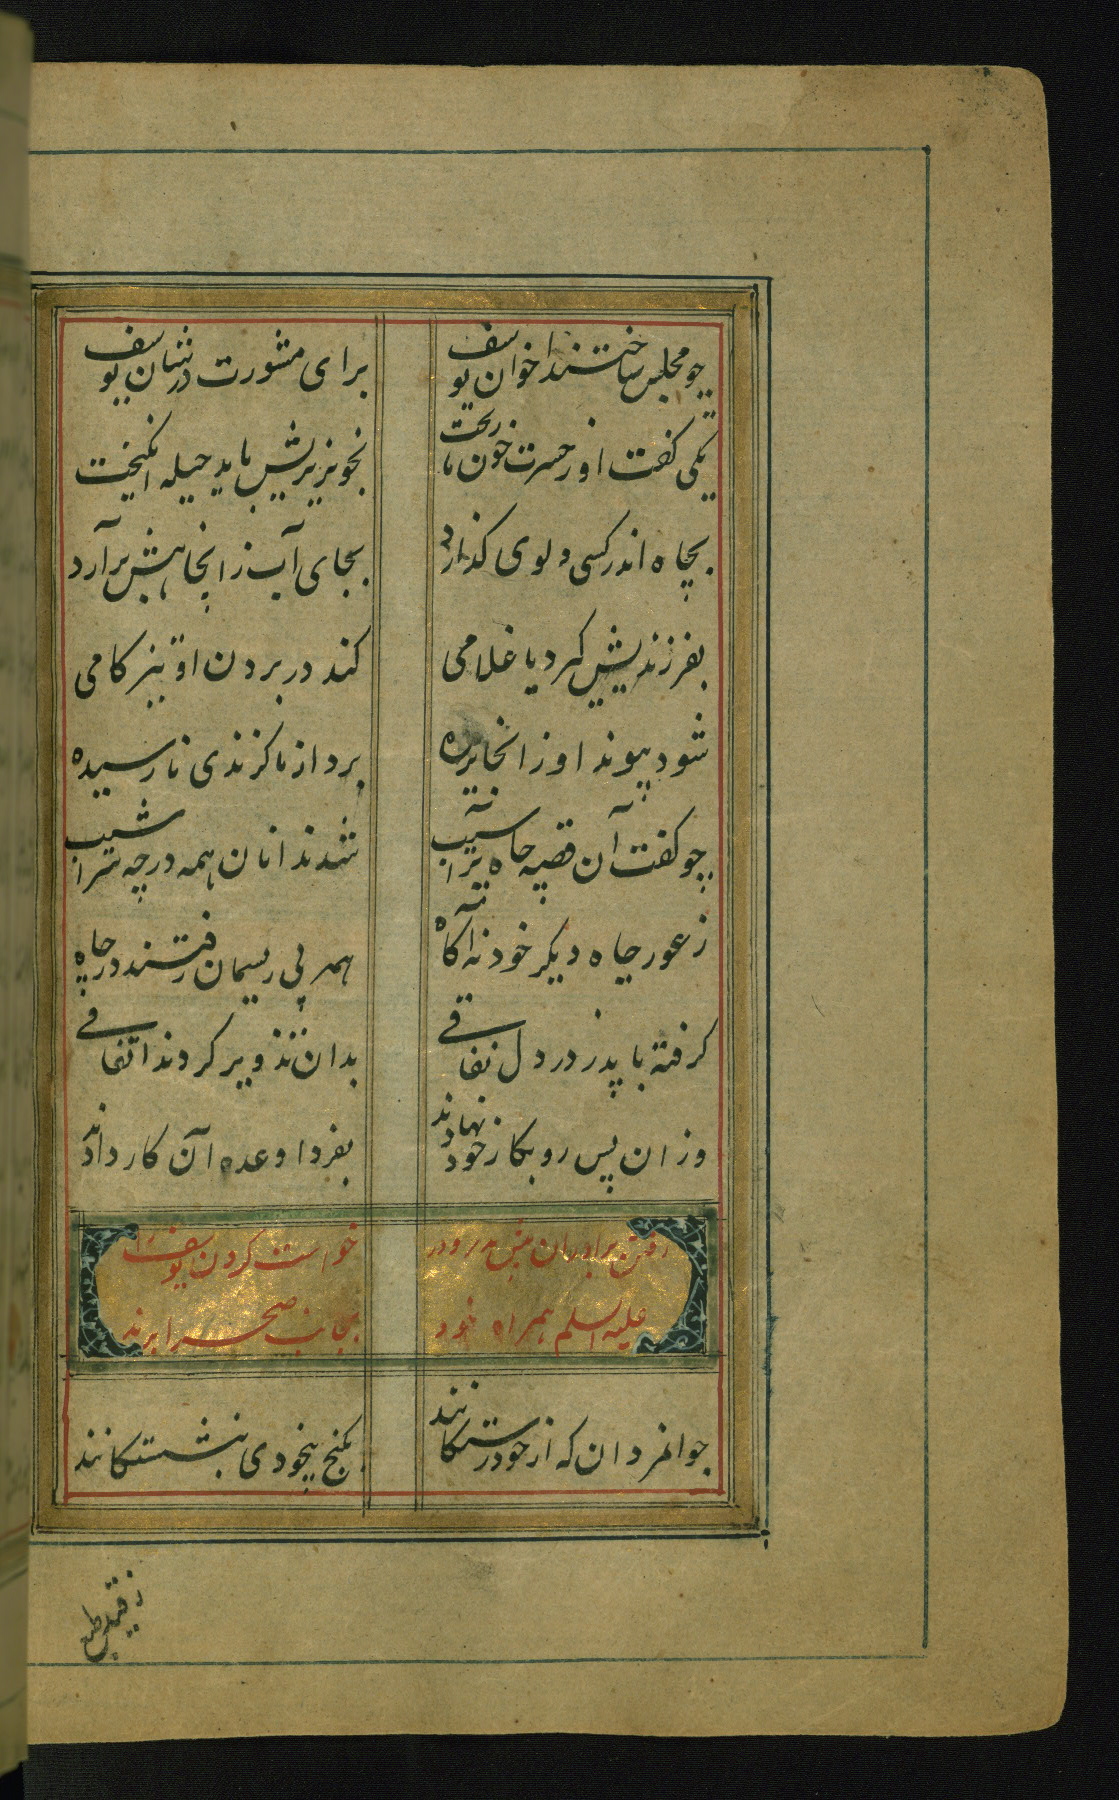 چو مجلس ساختند اخوان یوسف برای مشورت در شان یوسف
یکی گفت او ز حسرت خون ما ریخت بخونریزیش باید حیله انکیخت
بچاه اندر کسی دلوی کذارد بجای آب زانجاهش برآرد
بفرزندیش کیرد یا غلامی کند در بردن او تیز کامی
شود پیوند او زانجا بریده برد از ما کزندی نارسیده
چو کفت آن قصه چاه پر آسیب شدند انان همه در چه سراشیب
ز غور چاه دیکر خود نه آکاه همه بی ریسمان رفتند در چاه
کرفته با پدر در دل نفاقی بدان تزویر کردند اتفاقی
وزان پس رو بکار خود نهادند بفردا وعده آن کار دادند
رفتن برادران پیش پدر و در خواست کردن یوسف را
علیه السلم همراه خود بجانب صحرا برند
جوانمردان که از خود رستکانند بکنج بیخودی بنشستکانند